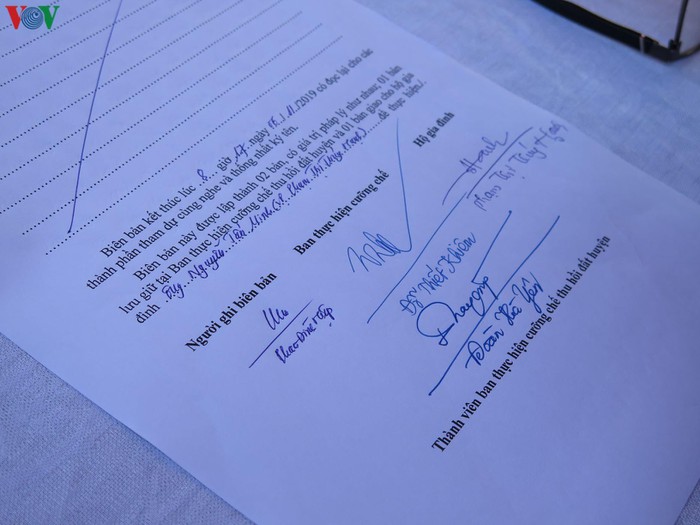 VOV
Biên bản kết thúc lúc 8 giờ ngày 2019 có đọc lại cho các
thành phần tham dự cùng nghe và thống nhất ký tên.
Biên bản này được lập thành 02 bản, có giá trị pháp lý như nhau: 01 bản
lưu giữ tại Ban thực hiện cưỡng chế thu hồi đất huyện và 01 bản giao cho hộ gia
đình Nguyễn Tấn Minh Phạm Thị Thúy để thực hiện./.
Người ghi biên bản
Ban thực hiện cưỡng chế
Hộ gia đình
Phạm Thị Thúy
Đỗ Thiết Khiêm
Thành viên ban thực hiện cưỡng chế thu hồi đất huyện